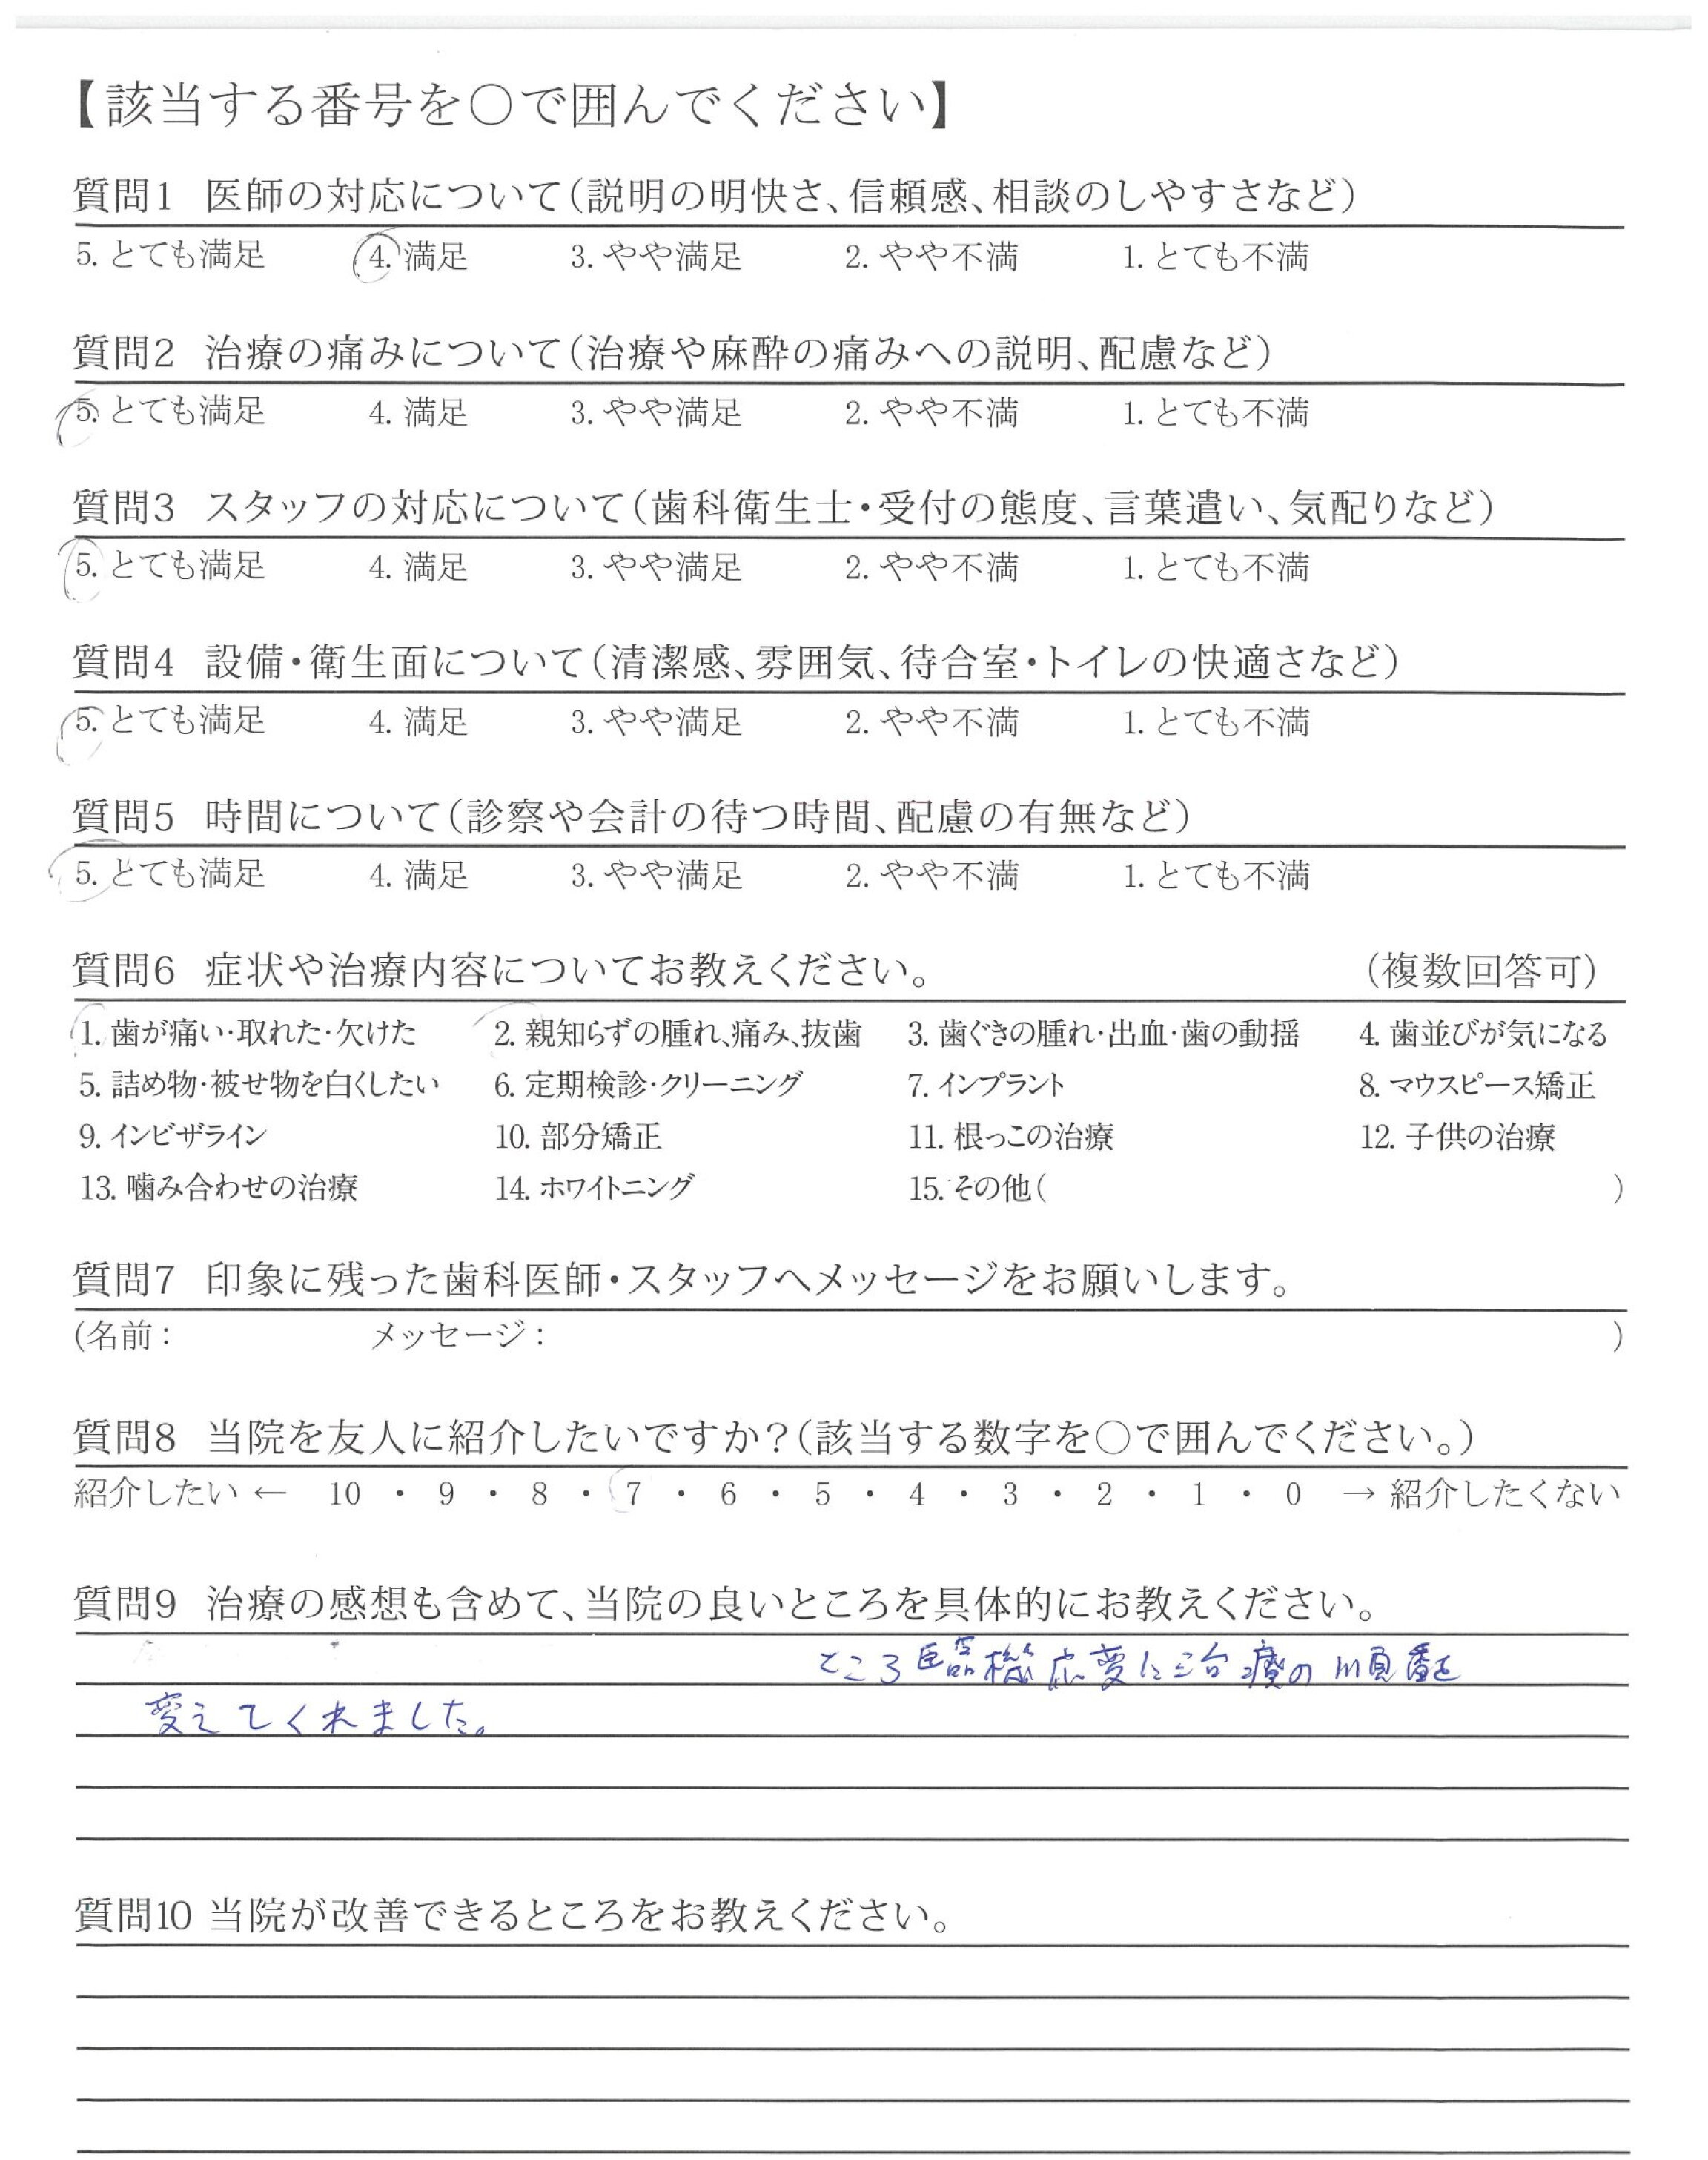 【該当する番号を○で囲んでください】
質問1 医師の対応について(説明の明快さ、信頼感、相談のしやすさなど)
5. とても満足 4. 満足 3. やや満足 2. やや不満 1. とても不満
質問2 治療の痛みについて(治療や麻酔の痛みへの説明、配慮など)
5. とても満足 4. 満足 3. やや満足 2. やや不満 1. とても不満
質問3 スタッフの対応について(歯科衛生士・受付の態度、言葉遣い、気配りなど)
5. とても満足 4. 満足 3. やや満足 2. やや不満 1. とても不満
質問4 設備・衛生面について(清潔感、雰囲気、待合室・トイレの快適さなど)
5. とても満足 4. 満足 3. やや満足 2. やや不満 1. とても不満
質問5 時間について(診察や会計の待つ時間、配慮の有無など)
5. とても満足 4. 満足 3. やや満足 2. やや不満 1. とても不満
質問6 症状や治療内容についてお教えください。 (複数回答可)
1. 歯が痛い・取れた・欠けた 2. 親知らずの腫れ、痛み、抜歯 3. 歯ぐきの腫れ・出血・歯の動揺 4. 歯並びが気になる
5. 詰め物・被せ物を白くしたい 6. 定期検診・クリーニング 7. インプラント 8. マウスピース矯正
9. インビザライン 10. 部分矯正 11. 根っこの治療 12. 子供の治療
13. 噛み合わせの治療 14. ホワイトニング 15. その他( )
質問7 印象に残った歯科医師・スタッフへメッセージをお願いします。
(名前: メッセージ: )
質問8 当院を友人に紹介したいですか?(該当する数字を○で囲んでください。)
紹介したい ← 10 ・ 9 ・ 8 ・ 7 ・ 6 ・ 5 ・ 4 ・ 3 ・ 2 ・ 1 ・ 0 → 紹介したくない
質問9 治療の感想も含めて、当院の良いところを具体的にお教えください。
ところ臨機応変に治療の順番を
変えてくれました。
質問10 当院が改善できるところをお教えください。